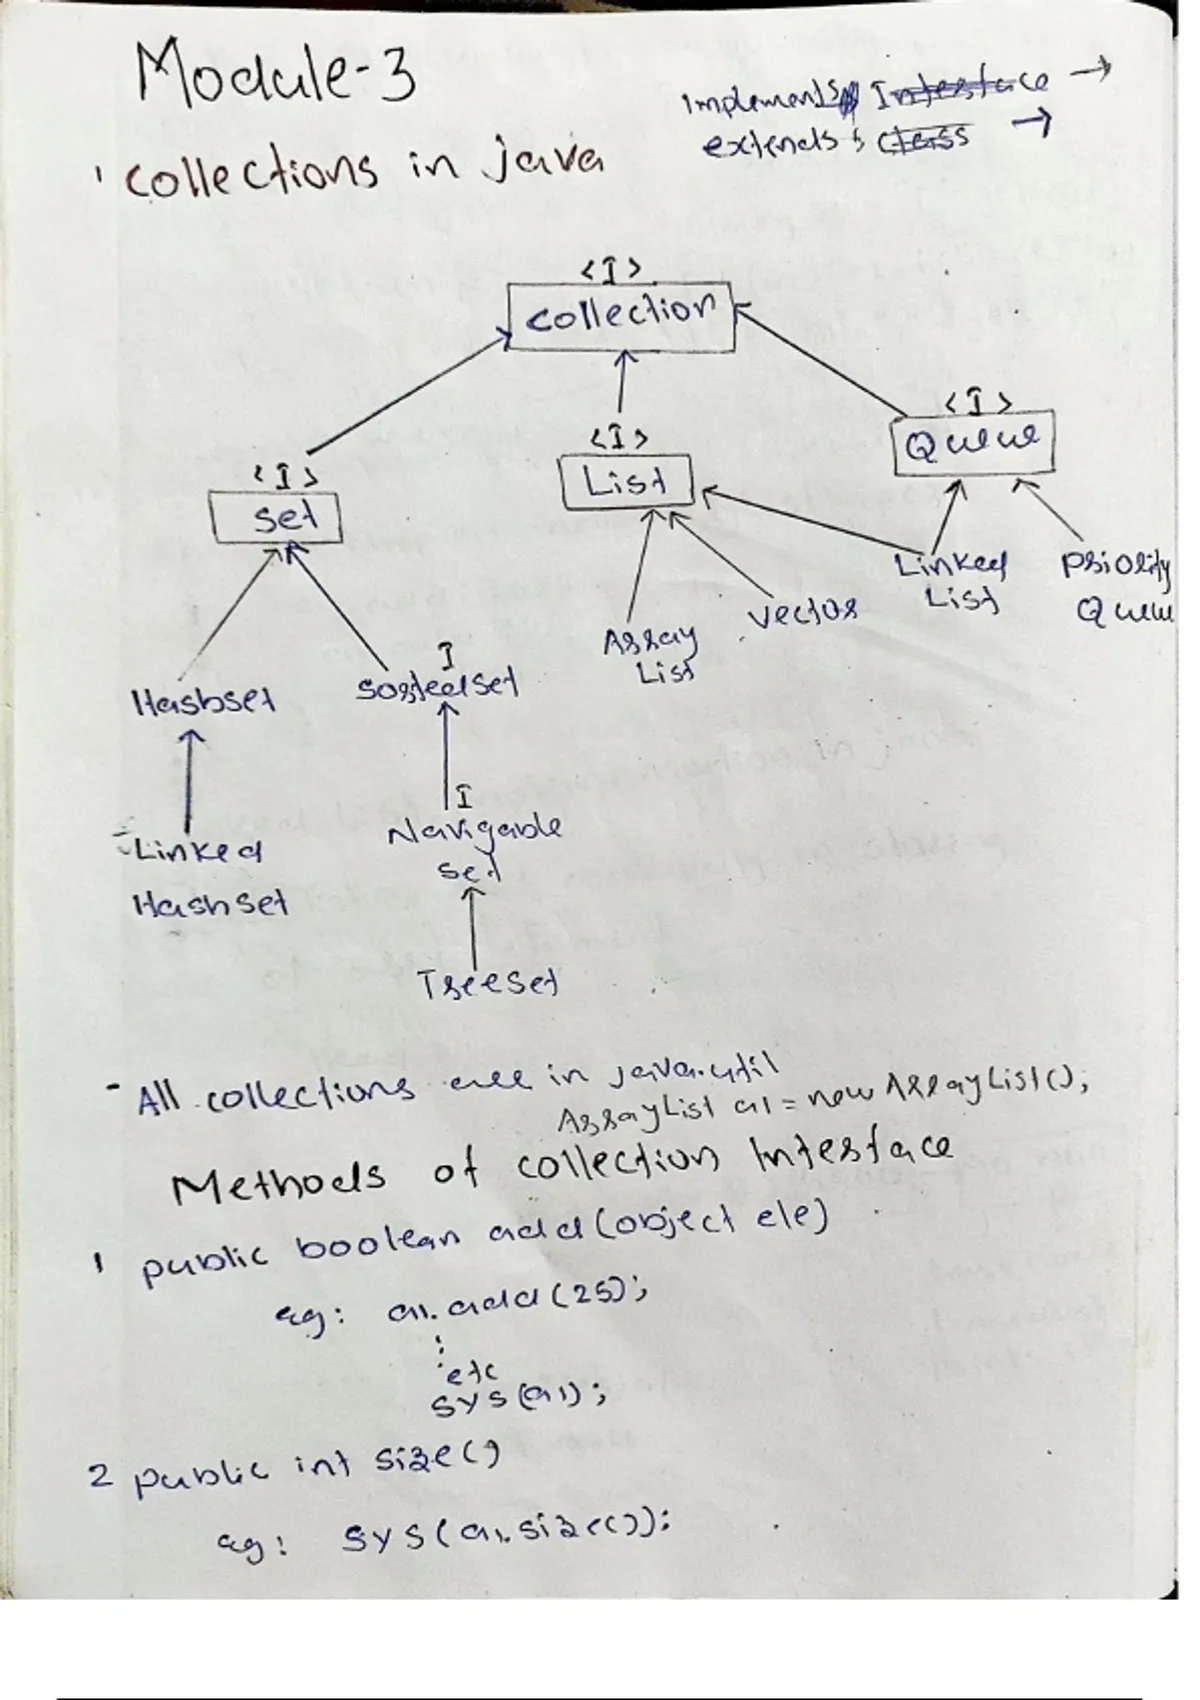 Module-3
implements Interface →
extends : class →
' collections in java
<I>
collection
<I>
Queue
<I>
List
<I>
set
Linked
List
Priority
Queue
vector
Array
List
Hashset
I
sortedset
I
Navigable
set
Linked
Hashset
Treeset
- All collections are in java.util
ArrayList a1 = new ArrayList();
Methods of collection Interface
1 public boolean add(object ele)
eg: a1.add(25);
⋮
etc
sys(a1);
2 public int size()
eg: sys(a1.size());